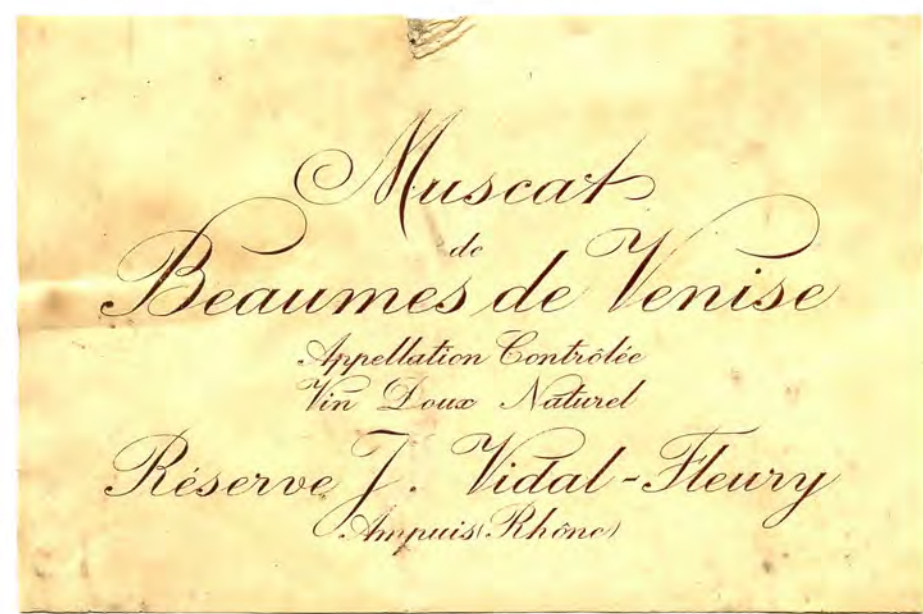 Muscat
de
Beaumes de Venise
Appellation Contrôlée
Vin Doux Naturel
Réserve J. Vidal-Fleury
Ampuis (Rhône)